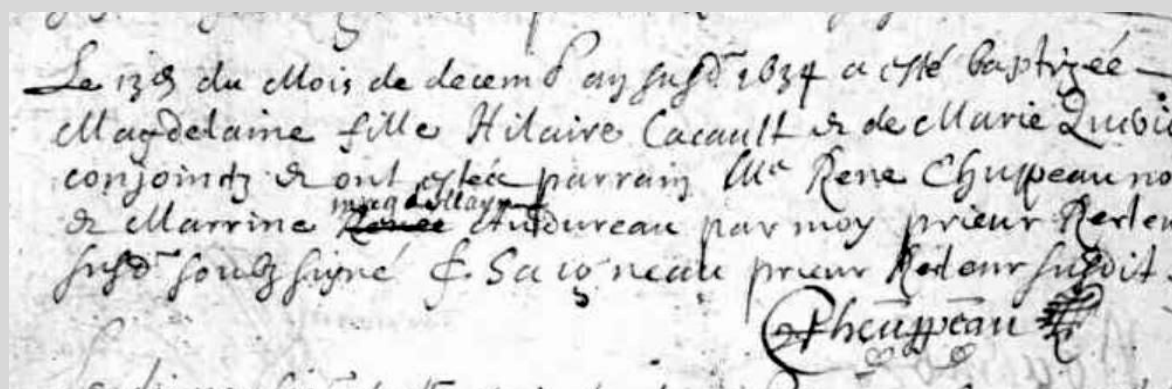 Le 13e du Mois de decemb an susd 1634 a esté baptizée
Magdelaine fille Hilaire Cacault & de Marie
conjointz & ont estée parrain Me Rene Chuppeau no
magdellayne
& Marrine Renee Audureau par moy prieur
susd soubz signé f. Saigneau prieur Recteur susdit
Cheuppeau